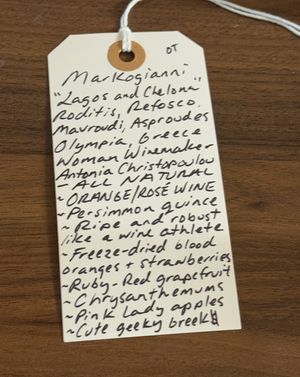 OT
Markogianni
"Lagos and Chelona"
Roditis, Refosco,
Mavroudi, Asproudes
Olympia, Greece
Woman Winemaker
Antonia Christopoulou
- ALL NATURAL
~ORANGE/ROSÉ WINE
~Persimmon quince
~Ripe and robust
like a wine athlete
~Freeze-dried blood
oranges + strawberries
~Ruby-Red grapefruit
~Chrysanthemums
~Pink Lady apples
~Cute geeky breek